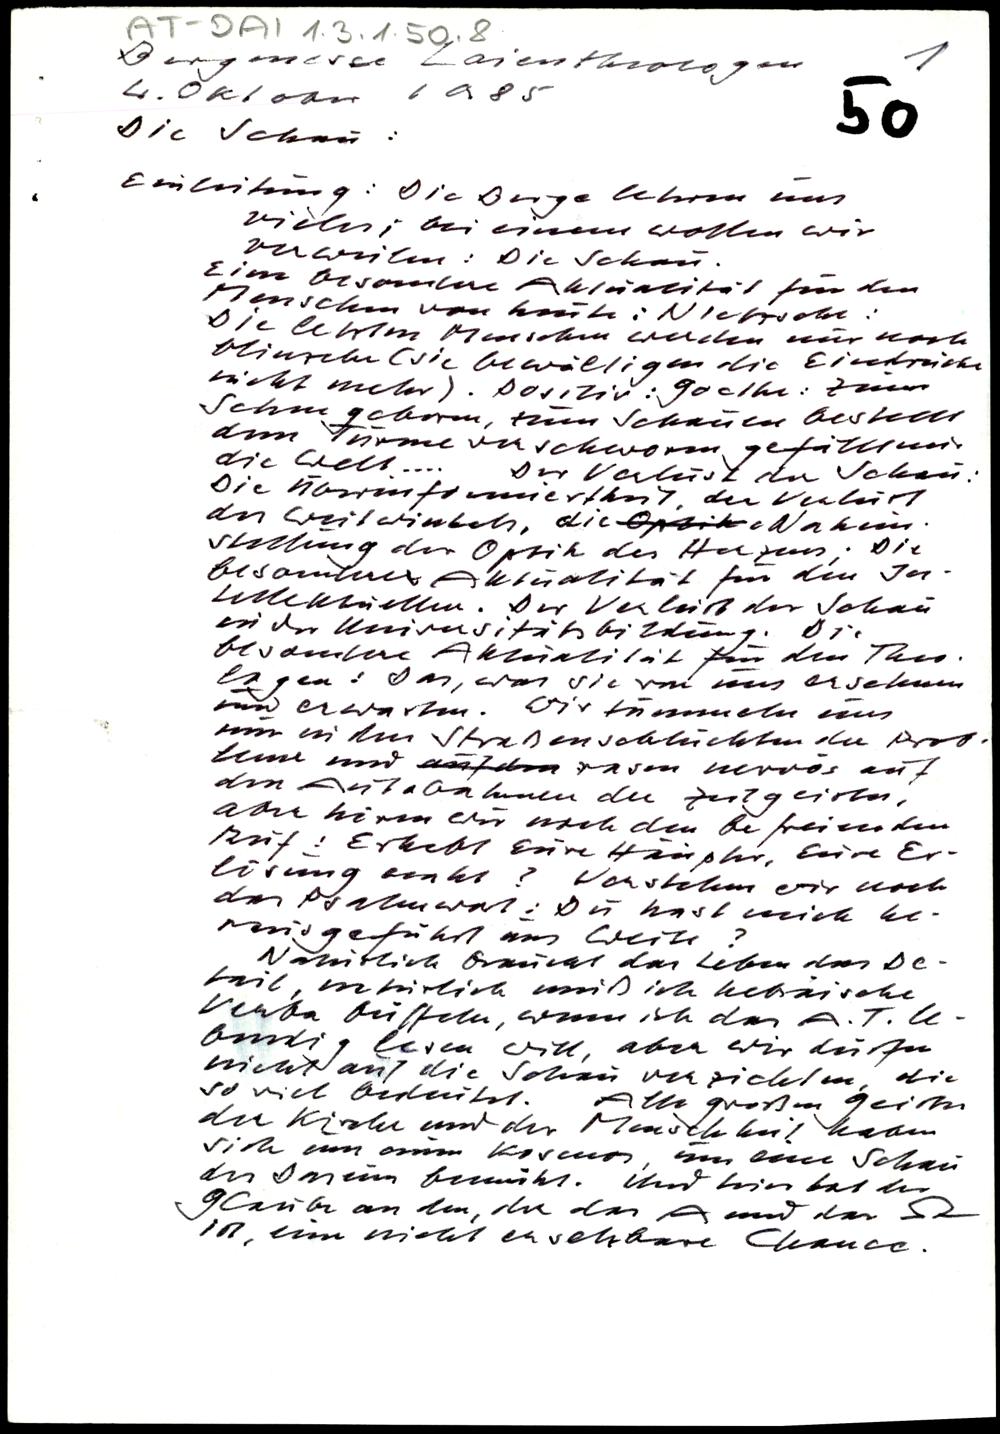 AT-DAI 1.3.1.50.8
Bergmesse Laientheologen 1
4. Oktober 1985
50
Die Schau:
Einleitung: Die Berge lehren uns
vieles; bei einem wollen wir
verweilen: Die Schau.
Eine besondere Aktualität für den
Menschen von heute: Nietzsche:
Die letzten Menschen werden nur noch
blinzeln (sie bewältigen die Eindrücke
nicht mehr). Positiv: Goethe: Zum
Sehen geboren, zum Schauen bestellt
dem Turme verschworen gefällt mir
die Welt.... Der Verlust der Schau:
Die Überinformiertheit, der Verlust
des Weitwinkels, die Optik Nahein-
stellung der Optik des Herzens. Die
besondere Aktualität für den In-
tellektuellen. Der Verlust der Schau
in der Universitätsbildung. Die
besondere Aktualität für den Theo-
logen: Das, was sie von uns ersehnen
und erwarten. Wir tummeln uns
nur in den Straßenschluchten der Prob-
leme und auf den rasen nervös auf
den Autobahnen des Zeitgeistes,
aber hören wir noch den befreienden
Ruf: Erhebt Eure Häupter, Eure Er-
lösung naht? Verstehen wir noch
das Psalmwort: Du hast mich he-
rausgeführt ins Weite?
Natürlich braucht das Leben das De-
tail, natürlich muß ich hebräische
Verba büffeln, wenn ich das A.T. le-
bendig lesen will, aber wir dürfen
nicht auf die Schau verzichten, die
so viel bedeutet. Alle großen Geister
der Kirche und der Menschheit haben
sich um einen Kosmos, um eine Schau
des Daseins bemüht. Und hier hat der
Glaube an den, der das A und das Ω
ist, eine nicht ersetzbare Chance.